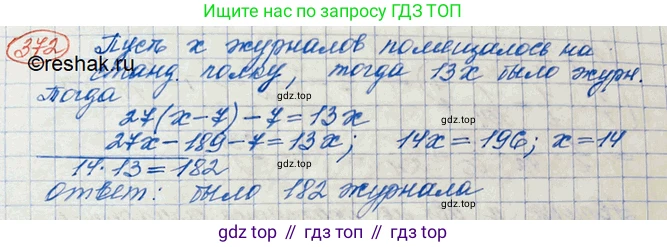 Ищите нас по запросу ГДЗ ТОП
372 Пусть x журналов помещалось на
©reshak.ru станд. полку, тогда 13x было журн.
Тогда
27(x-7)-7=13x
27x-189-7=13x; 14x=196; x=14
14·13=182
Ответ: было 182 журнала
gdz.top
gdz.top
gdz.top
gdz.top
gdz.top
gdz.top // гдз.топ // gdz.top // гдз.топ